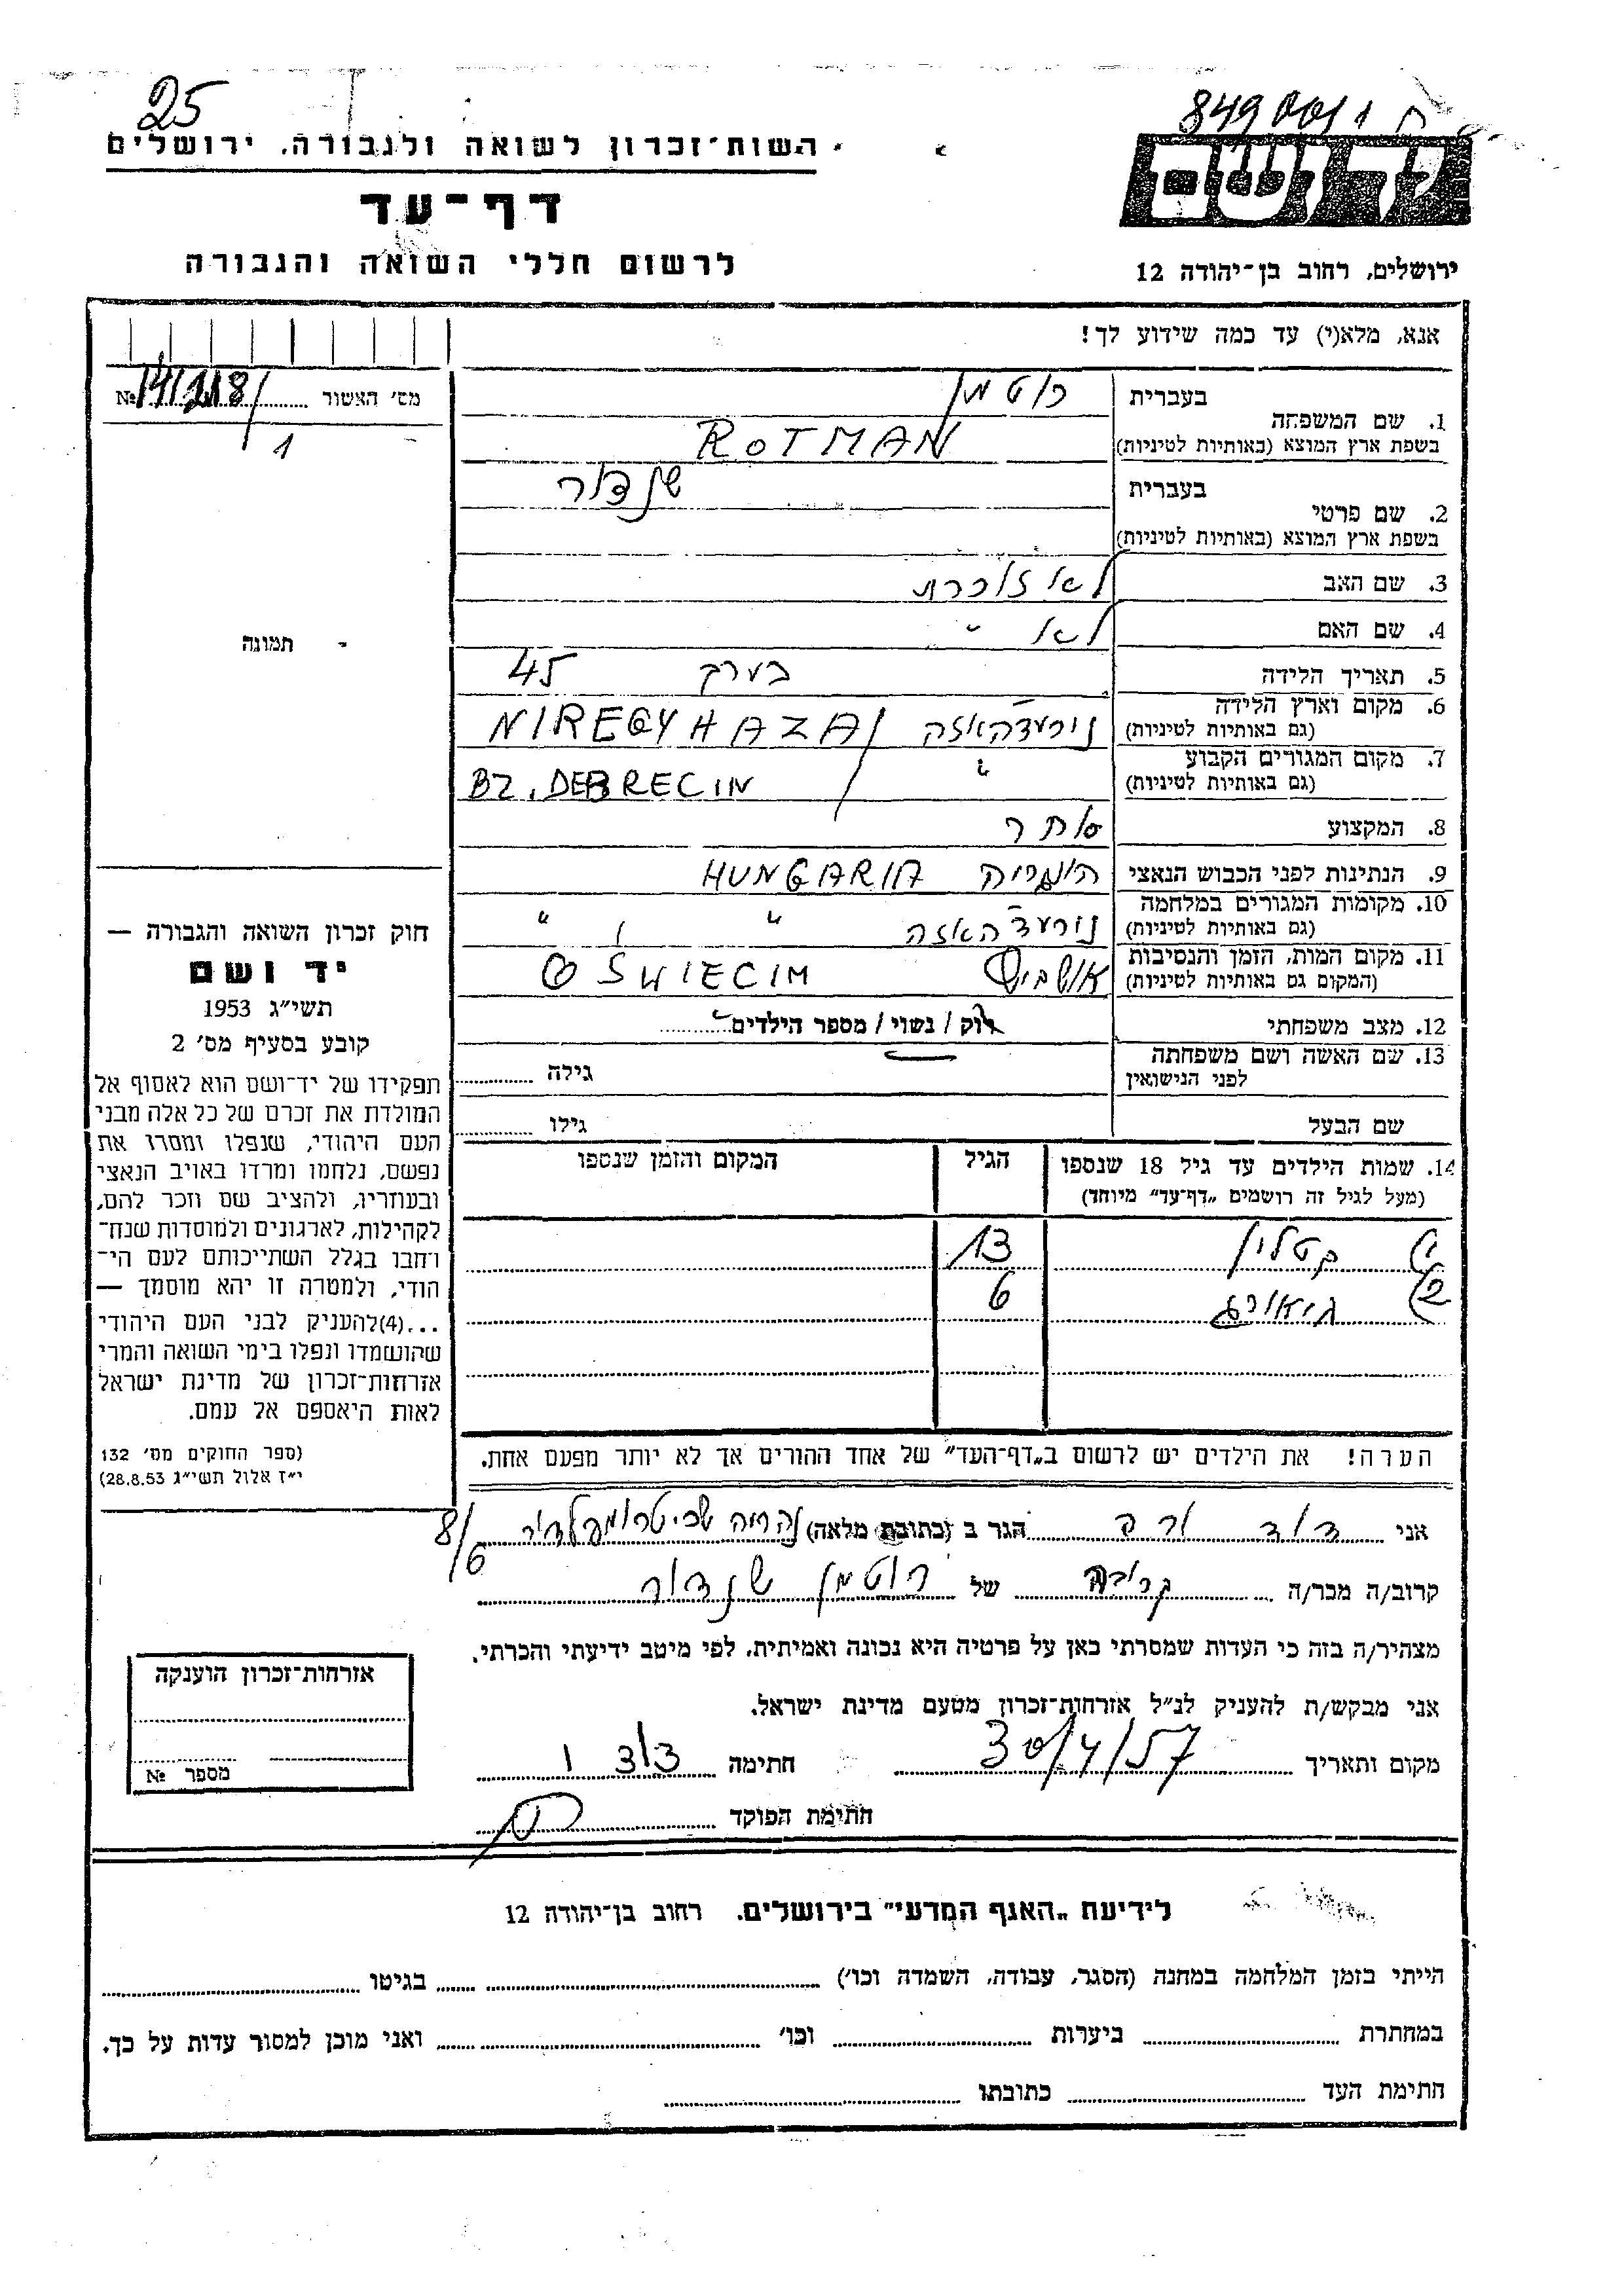 25
8490011
רשות־זכרון לשואה ולגבורה, ירושלים
יד ושם
דף־עד
לרשום חללי השואה והגבורה
ירושלים, רחוב בן־יהודה 12
אנא, מלא(י) עד כמה שידוע לך!
מס׳ האשור № 141218/1
1. שם המשפחה
בעברית רוטמן
בשפת ארץ המוצא (באותיות לטיניות) ROTMAN
2. שם פרטי
בעברית שנדור
בשפת ארץ המוצא (באותיות לטיניות)
3. שם האב לא זוכרת
4. שם האם לא "
תמונה
5. תאריך הלידה בערך 45
6. מקום וארץ הלידה
(גם באותיות לטיניות) נירעדהאזה / NIREGYHAZA
7. מקום המגורים הקבוע
(גם באותיות לטיניות) " / BZ. DEBRECIN
8. המקצוע סוחר
9. הנתינות לפני הכבוש הנאצי הונגריה HUNGARIA
10. מקומות המגורים במלחמה
(גם באותיות לטיניות) נירעדהאזה " "
11. מקום המות, הזמן והנסיבות
(המקום גם באותיות לטיניות) אושביץ OSWIECIM
12. מצב משפחתי רוק / נשוי / מספר הילדים
13. שם האשה ושם משפחתה
לפני הנישואין גילה
שם הבעל גילו
14. שמות הילדים עד גיל 18 שנספו
(מעל לגיל זה רושמים „דף־עד״ מיוחד)
הגיל
המקום והזמן שנספו
1) קטלין 13
2) 6
הערה! את הילדים יש לרשום ב„דף־העד״ של אחד ההורים אך לא יותר מפעם אחת.
חוק זכרון השואה והגבורה —
יד ושם
תשי״ג 1953
קובע בסעיף מס׳ 2
תפקידו של יד־ושם הוא לאסוף אל
המולדת את זכרם של כל אלה מבני
העם היהודי, שנפלו ומסרו את
נפשם, נלחמו ומרדו באויב הנאצי
ובעוזריו, ולהציב שם וזכר להם,
לקהילות, לארגונים ולמוסדות שנח־
רבו בגלל השתייכותם לעם הי־
הודי, ולמטרה זו יהא מוסמך —
...(4)להעניק לבני העם היהודי
שהושמדו ונפלו בימי השואה והמרי
אזרחות־זכרון של מדינת ישראל
לאות היאספם אל עמם.
(ספר החוקים מס׳ 132
י״ז אלול תשי״ג 28.8.53)
אני דוד הגר ב (כתובת מלאה) נהריה 8/6
קרוב/ה מכר/ה קרובה של רוטמן שנדור
מצהיר/ה בזה כי העדות שמסרתי כאן על פרטיה היא נכונה ואמיתית, לפי מיטב ידיעתי והכרתי.
אני מבקש/ת להעניק לנ״ל אזרחות־זכרון מטעם מדינת ישראל.
מקום ותאריך 30/4/57 חתימה דוד ו
חתימת הפוקד
אזרחות־זכרון הוענקה
מספר №
לידיעת „האגף המדעי״ בירושלים, רחוב בן־יהודה 12
הייתי בזמן המלחמה במחנה (הסגר, עבודה, השמדה וכו׳) בגיטו
במחתרת ביערות וכו׳ ואני מוכן למסור עדות על כך.
חתימת העד כתובתו